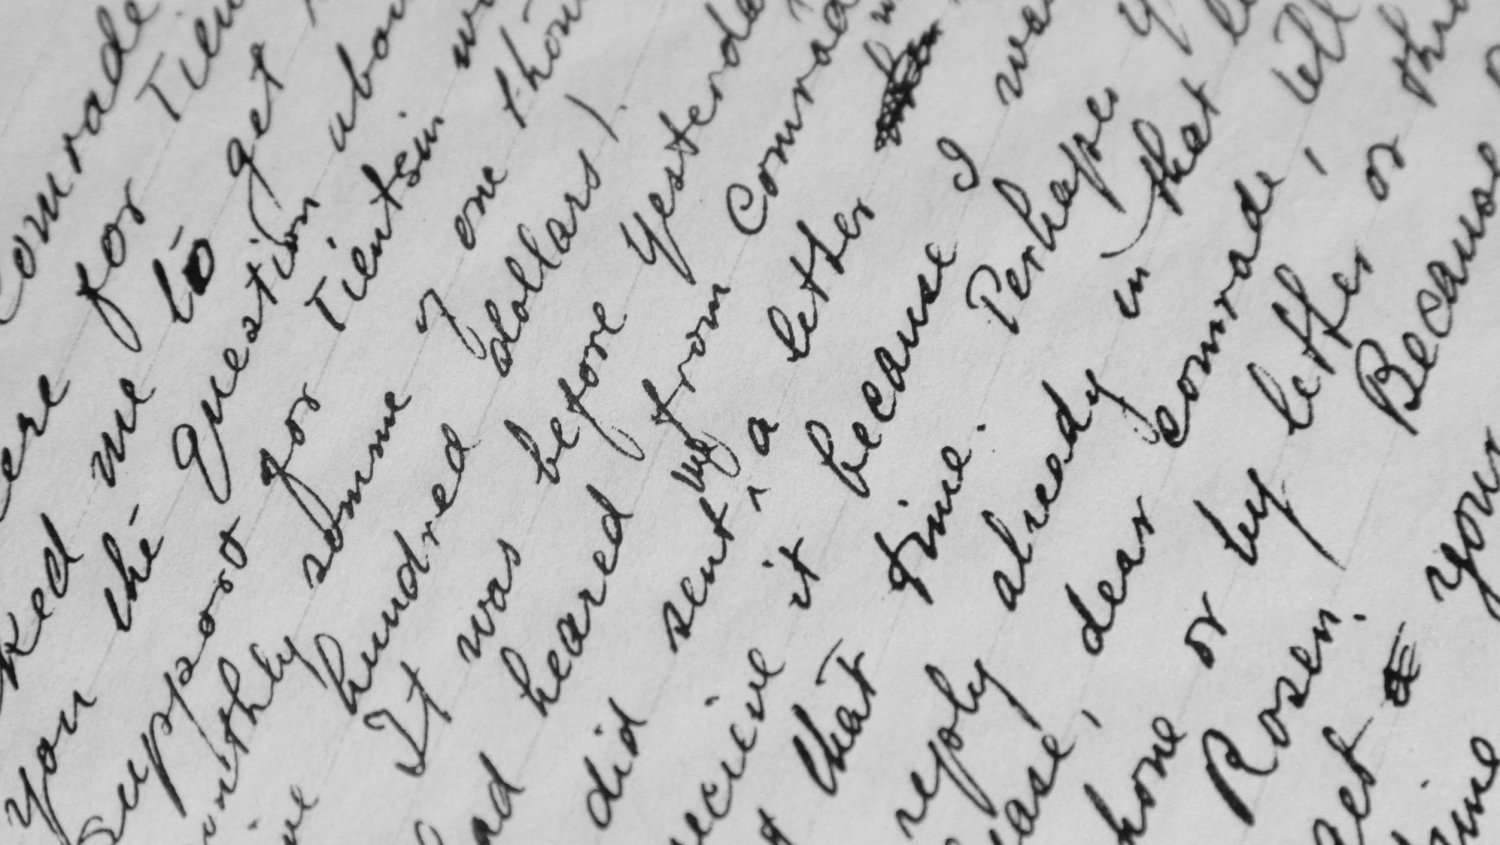 comrade
ere for Tien
ked me to get
you the question abou
support for Tientsin
nthly somme of one thou
ive hundred dollars).
It was before yesterda
ad heared from Comrad
did sent me a letter
eceive it because I wa
t that time. Perhaps y
reply already in that le
lease, dear comrade, tell
hone or by letter or thr
Rosen. Because
get your
time